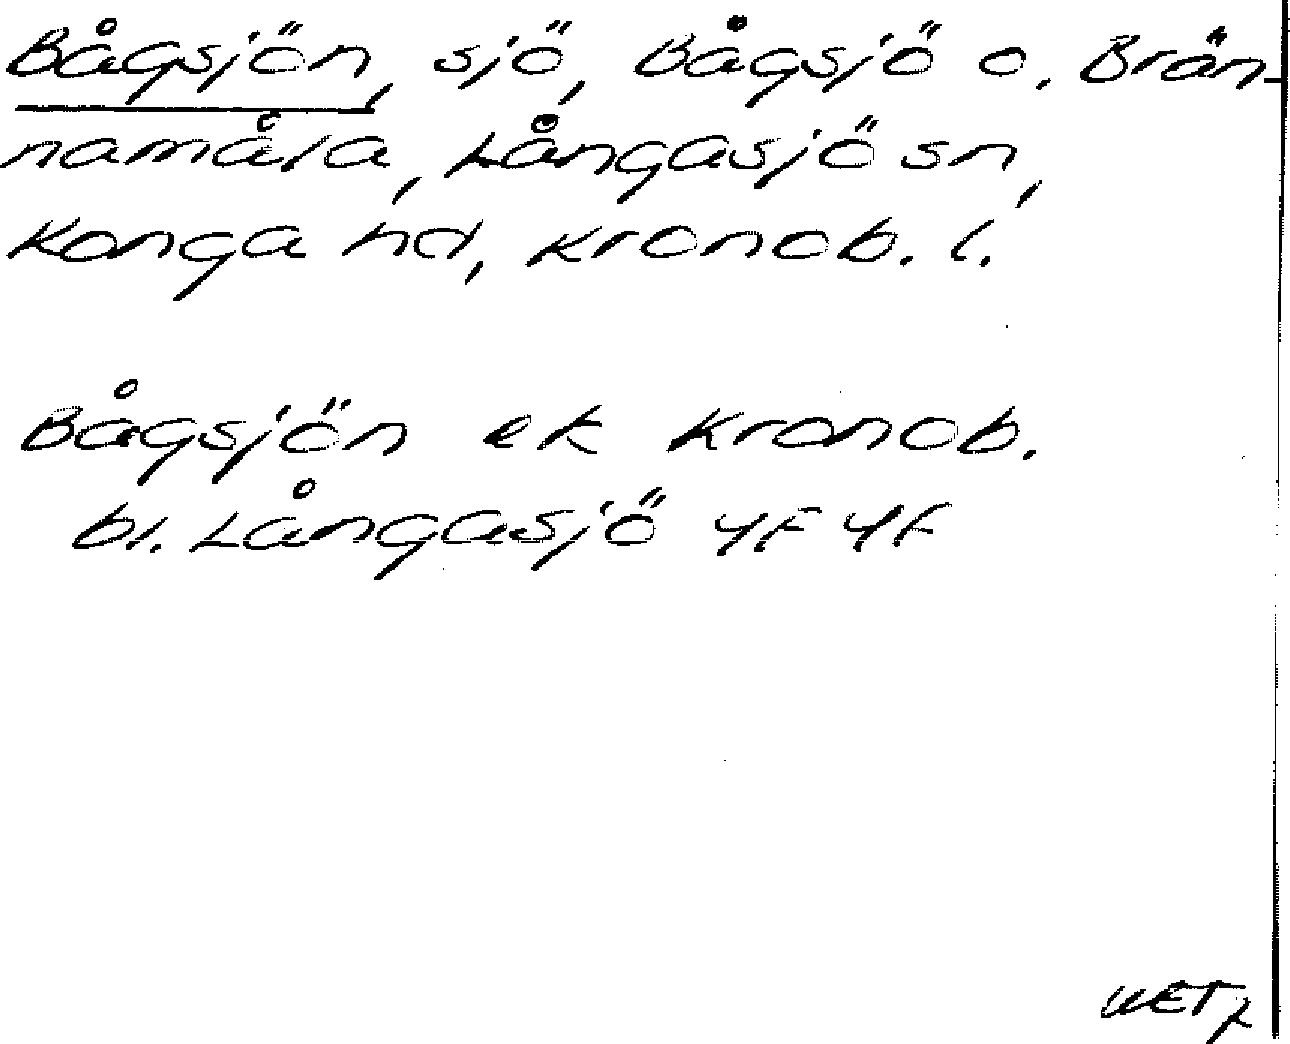 Bågsjön, sjö, Bågsjö o. Brän-
namåla, Långasjö sn,
Konga hd, Kronob. l.
Bågsjön ek Kronob.
bl. Långasjö 4F 4f